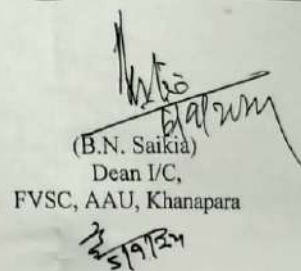 (B.N. Saikia)
Dean I/C,
FVSC, AAU, Khanapara
5/9/24